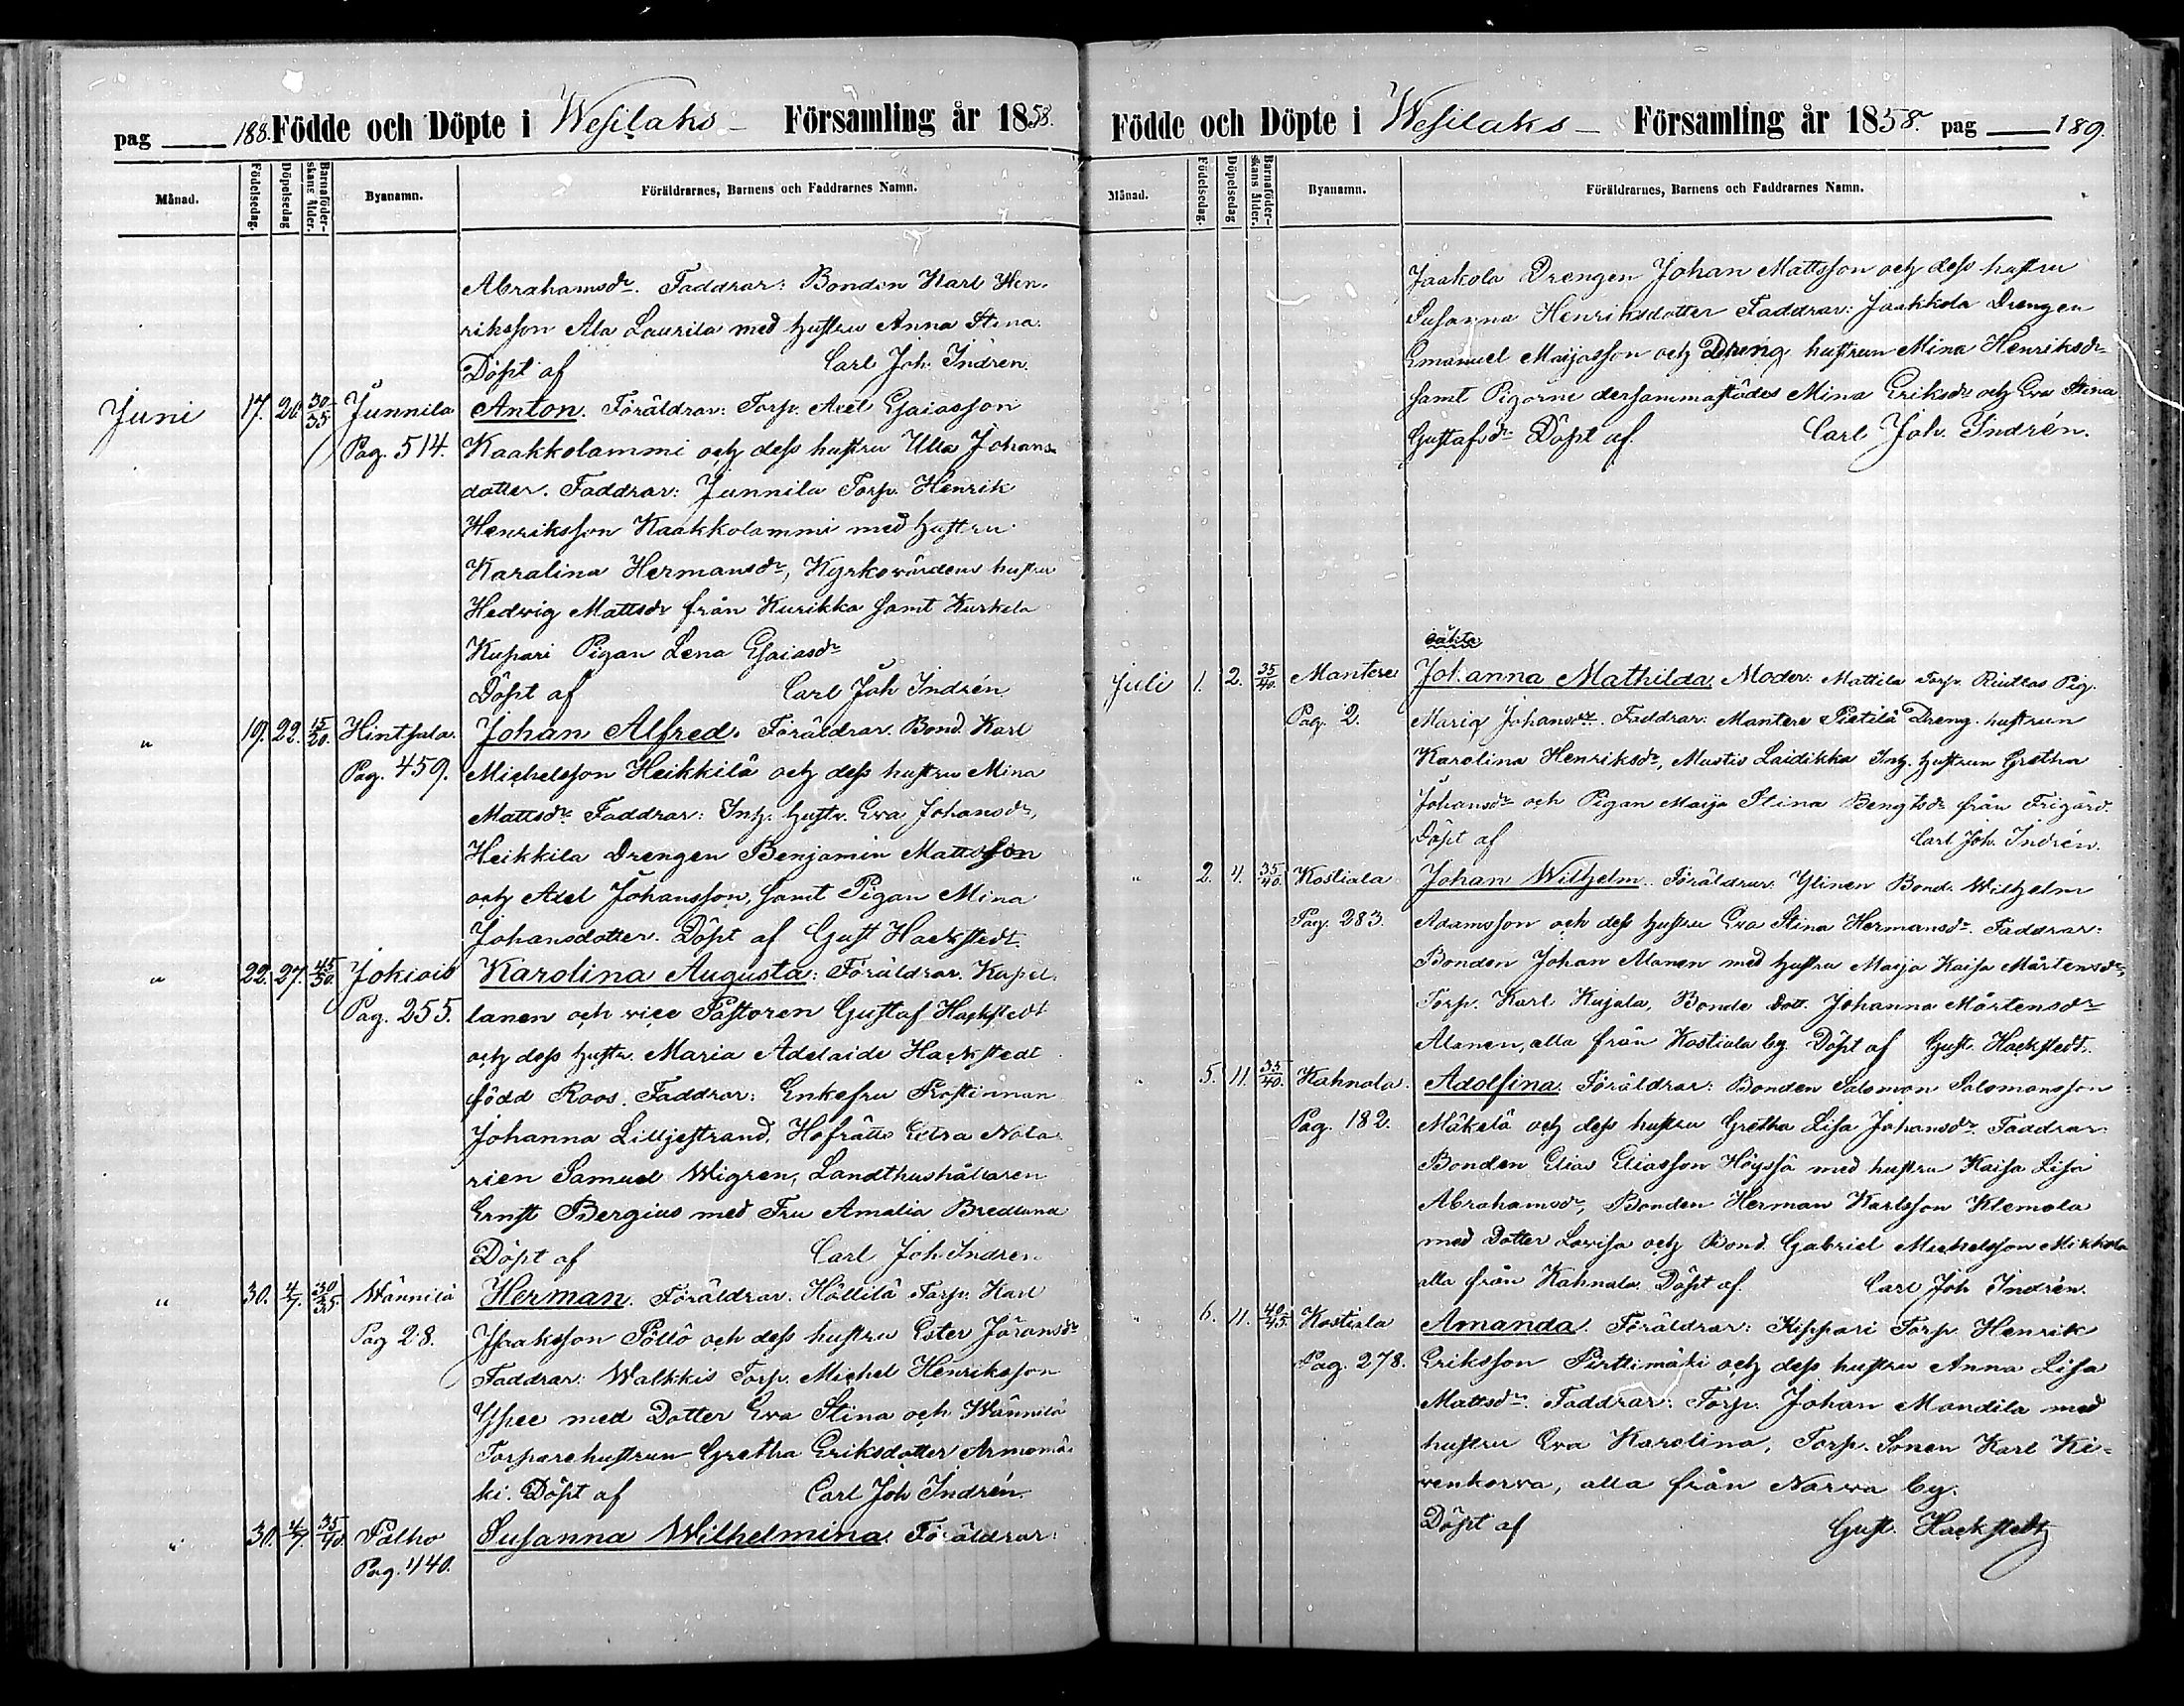 pag 188. Födde och Döpte i Wesilaks Församling år 1858.
Månad. Födelsedag. Döpelsedag Barnaföderskans ålder. Byanamn. Föräldrarnes, Barnens och Faddrarnes Namn.
Abrahamsdr. Faddrar: Bonden Karl Hen-
riksson Ala Laurila med hustru Anna Stina.
Döpt af Carl Joh. Indrén.
Juni 17. 20 30/35 Junnila Anton. Föräldrar: Torp. Axel Esaiasson
Pag. 514. Kaakkolammi och dess hustru Ulla Johans-
dotter. Faddrar: Junnila Torp. Henrik
Henriksson Kaakkolammi med hustru
Karalina Hermansdr, Kyrkovärdens hustru
Hedvig Mattsdr från Kurikka samt Kurkela
Kupari Pigan Lena Esaiasdr
Döpt af Carl Joh Indrén
" 19. 22. 15/20. Hintsala. Johan Alfred. Föräldrar. Bond. Karl
Pag. 459. Michelsson Heikkilä och dess hustru Mina
Mattsdr. Faddrar: Inh. hustr. Eva Johansdr,
Heikkila Drengen Benjamin Mattsson
och Axel Johansson, samt Pigan Mina
Johansdotter. Döpt af Gust Hackstedt.
" 22. 27. 45/50. Jokiois Karolina Augusta: Föräldrar. Kapel-
Pag. 255. lanen och vice Pastoren Gustaf Hackstedt
och dess hustr. Maria Adelaide Hackstedt
född Roos. Faddrar: Enkefru Prostinnan
Johanna Lilljestrand, Hofrätts Extra Nota-
rien Samuel Wigren, Landthushållaren
Ernst Bergius med Fru Amalia Bredlund
Döpt af Carl Joh. Indren
" 30. 4/7. 30/35. Wännilä Herman. Föräldrar. Hållilä Torp. Karl
Pag 28. Isaksson Pöllö och dess hustru Ester Jöransdr
Faddrar: Walkkis Torp. Michel Henriksson
Yspee med Dotter Eva Stina och Wännilä
Torparehustrun Gretha Eriksdotter Armomä-
ki. Döpt af Carl Joh Indrén.
" 30. 4/7. 35/40 Palho Susanna Wilhelmina. Föräldrar:
Pag. 440.
Födde och Döpte i Wesilaks Församling år 1858. pag 189.
Månad. Födelsedag. Döpelsedag Barnaföderskans ålder. Byanamn. Föräldrarnes, Barnens och Faddrarnes Namn.
Jaakola Drengen Johan Mattsson och dess hustru
Susanna Henriksdotter Faddrar: Jaakkola Drengen
Emanuel Maijasson och Dreng hustrun Mina Henriksdr
samt Pigorne dersammastädes Mina Eriksdr och Eva Stina
Gustafsdr. Döpt af. Carl Joh. Indrén.
oäkta
Juli 1. 2. 35/40. Mantere Johanna Mathilda, Moder: Mattila Torp. Pig.
Pag. 2. Maria Johansdr. Faddrar: Mantere Pietilä Dreng. hustrun
Karolina Henriksdr, Mustis Laidikka Inh. hustrun Gretha
Johansdr och Pigan Maija Stina Bengtsdr från Frigård.
Döpt af Carl Joh. Indrén.
" 2. 4. 35/40. Kostiala Johan Wilhelm. Föräldrar: Ylinen Bond. Wilhelm
Pag. 283. Adamsson och dess hustru Eva Stina Hermansdr. Faddrar:
Bonden Johan Alanen med hustru Maija Kaisa Mårtensdr,
Torp. Karl Kujala, Bonde Dott. Johanna Mårtensdr
Alanen, alla från Kostiala by. Döpt af Gust. Hackstedt.
" 5. 11. 35/40. Kahnala. Adolfina. Föräldrar: Bonden Salomon Salomonsson
Pag. 182. Mäkelä och dess hustru Gretha Lisa Johansdr. Faddrar:
Bonden Elias Eliasson Höyssä med hustru Kaisa Lisa
Abrahamsdr, Bonden Herman Karlsson Klemola
med Dotter Lovisa och Bond. Gabriel Michelsson Mikkola
alla från Kahnala. Döpt af. Carl Joh Indrén.
" 6. 11. 40/45. Kostiala Amanda. Föräldrar: Kippari Torp. Henrik
Pag. 278. Eriksson Pirttimäki och dess hustru Anna Lisa
Mattsdr. Faddrar: Torp. Johan Mandila med
hustru Eva Karolina, Torp. Sonen Karl Ki-
venkorva, alla från Narva by.
Döpt af Gust. Hackstedt